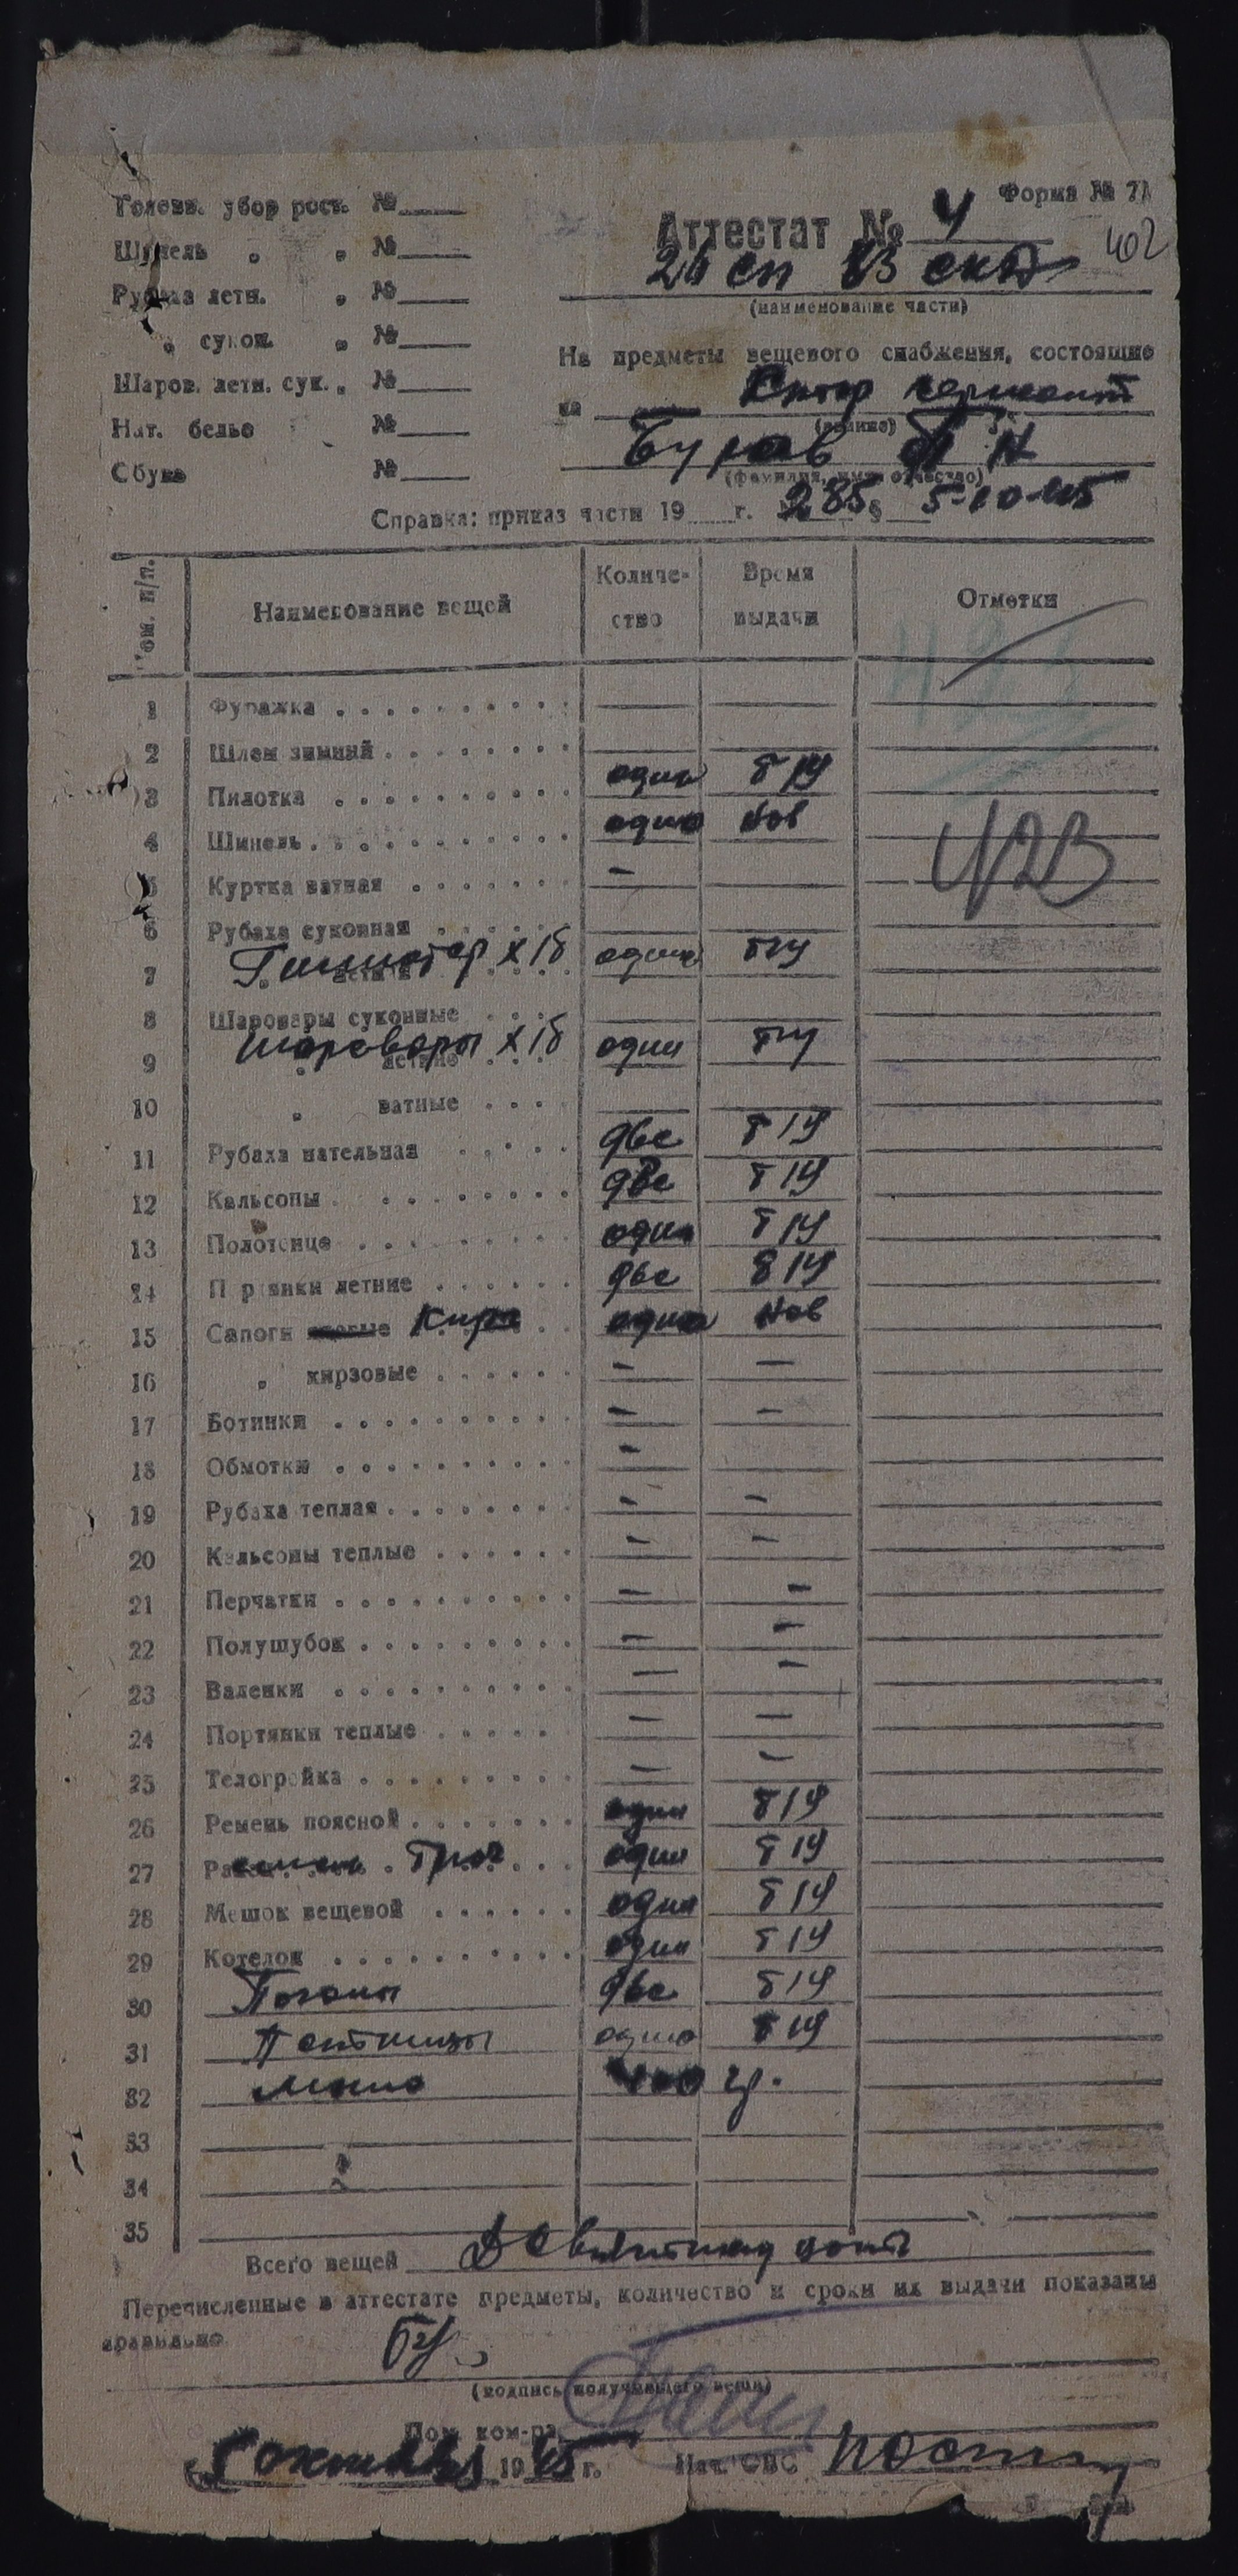 Форма № 7А
Головн. убор рост. №
Шинель " " №
Рубаха летн. " №
" сукон. " №
Шаров. летн. сук. " №
Нат. белье №
Обувь №
Аттестат № 4
402
24 сп 83
(наименование части)
На предметы вещевого снабжения, состоящие
на сержант
(звание)
Буров П Н
(фамилия, имя отчество)
Справка: приказ части 19 г. № 285 § 5-10-45
Ном. п/п.
Наименование вещей
Количе-ство
Время выдачи
Отметки
1 Фуражка
2 Шлем зимний
3 Пилотка один
4 Шинель одна нов
423
5 Куртка ватная —
6 Рубаха суконная
7 " летняя Гимнастер х/б одна
8 Шаровары суконные
9 " летние шаровары х/б один
10 " ватные
11 Рубаха нательная две
12 Кальсоны две
13 Полотенце один
14 Портянки летние две
15 Сапоги Кирз одна нов
16 " кирзовые — —
17 Ботинки — —
18 Обмотки —
19 Рубаха теплая — —
20 Кальсоны теплые — —
21 Перчатки — —
22 Полушубок — —
23 Валенки — —
24 Портянки теплые — —
25 Телогрейка — —
26 Ремень поясной один
27 один
28 Мешок вещевой один
29 Котелок один
30 Погоны две
31 Петлицы одна
32 Мыло 400 гр.
33
34
35
Всего вещей
Перечисленные в аттестате предметы, количество и сроки их выдачи показаны
правильно
(подпись получившего вещи)
Пом. ком-ра
5 октября 1945 г. Нач. ОВС